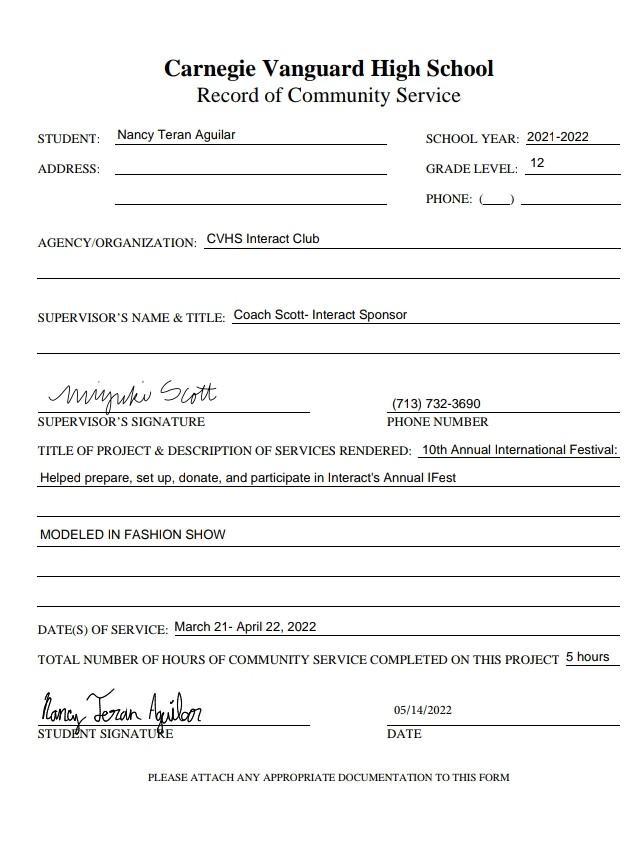 Carnegie Vanguard High School
Record of Community Service
STUDENT: Nancy Teran Aguilar SCHOOL YEAR: 2021-2022
ADDRESS: GRADE LEVEL: 12
PHONE: (____)
AGENCY/ORGANIZATION: CVHS Interact Club
SUPERVISOR'S NAME & TITLE: Coach Scott- Interact Sponsor
Miyuki Scott (713) 732-3690
SUPERVISOR'S SIGNATURE PHONE NUMBER
TITLE OF PROJECT & DESCRIPTION OF SERVICES RENDERED: 10th Annual International Festival:
Helped prepare, set up, donate, and participate in Interact's Annual IFest
MODELED IN FASHION SHOW
DATE(S) OF SERVICE: March 21- April 22, 2022
TOTAL NUMBER OF HOURS OF COMMUNITY SERVICE COMPLETED ON THIS PROJECT 5 hours
Nancy Teran Aguilar 05/14/2022
STUDENT SIGNATURE DATE
PLEASE ATTACH ANY APPROPRIATE DOCUMENTATION TO THIS FORM